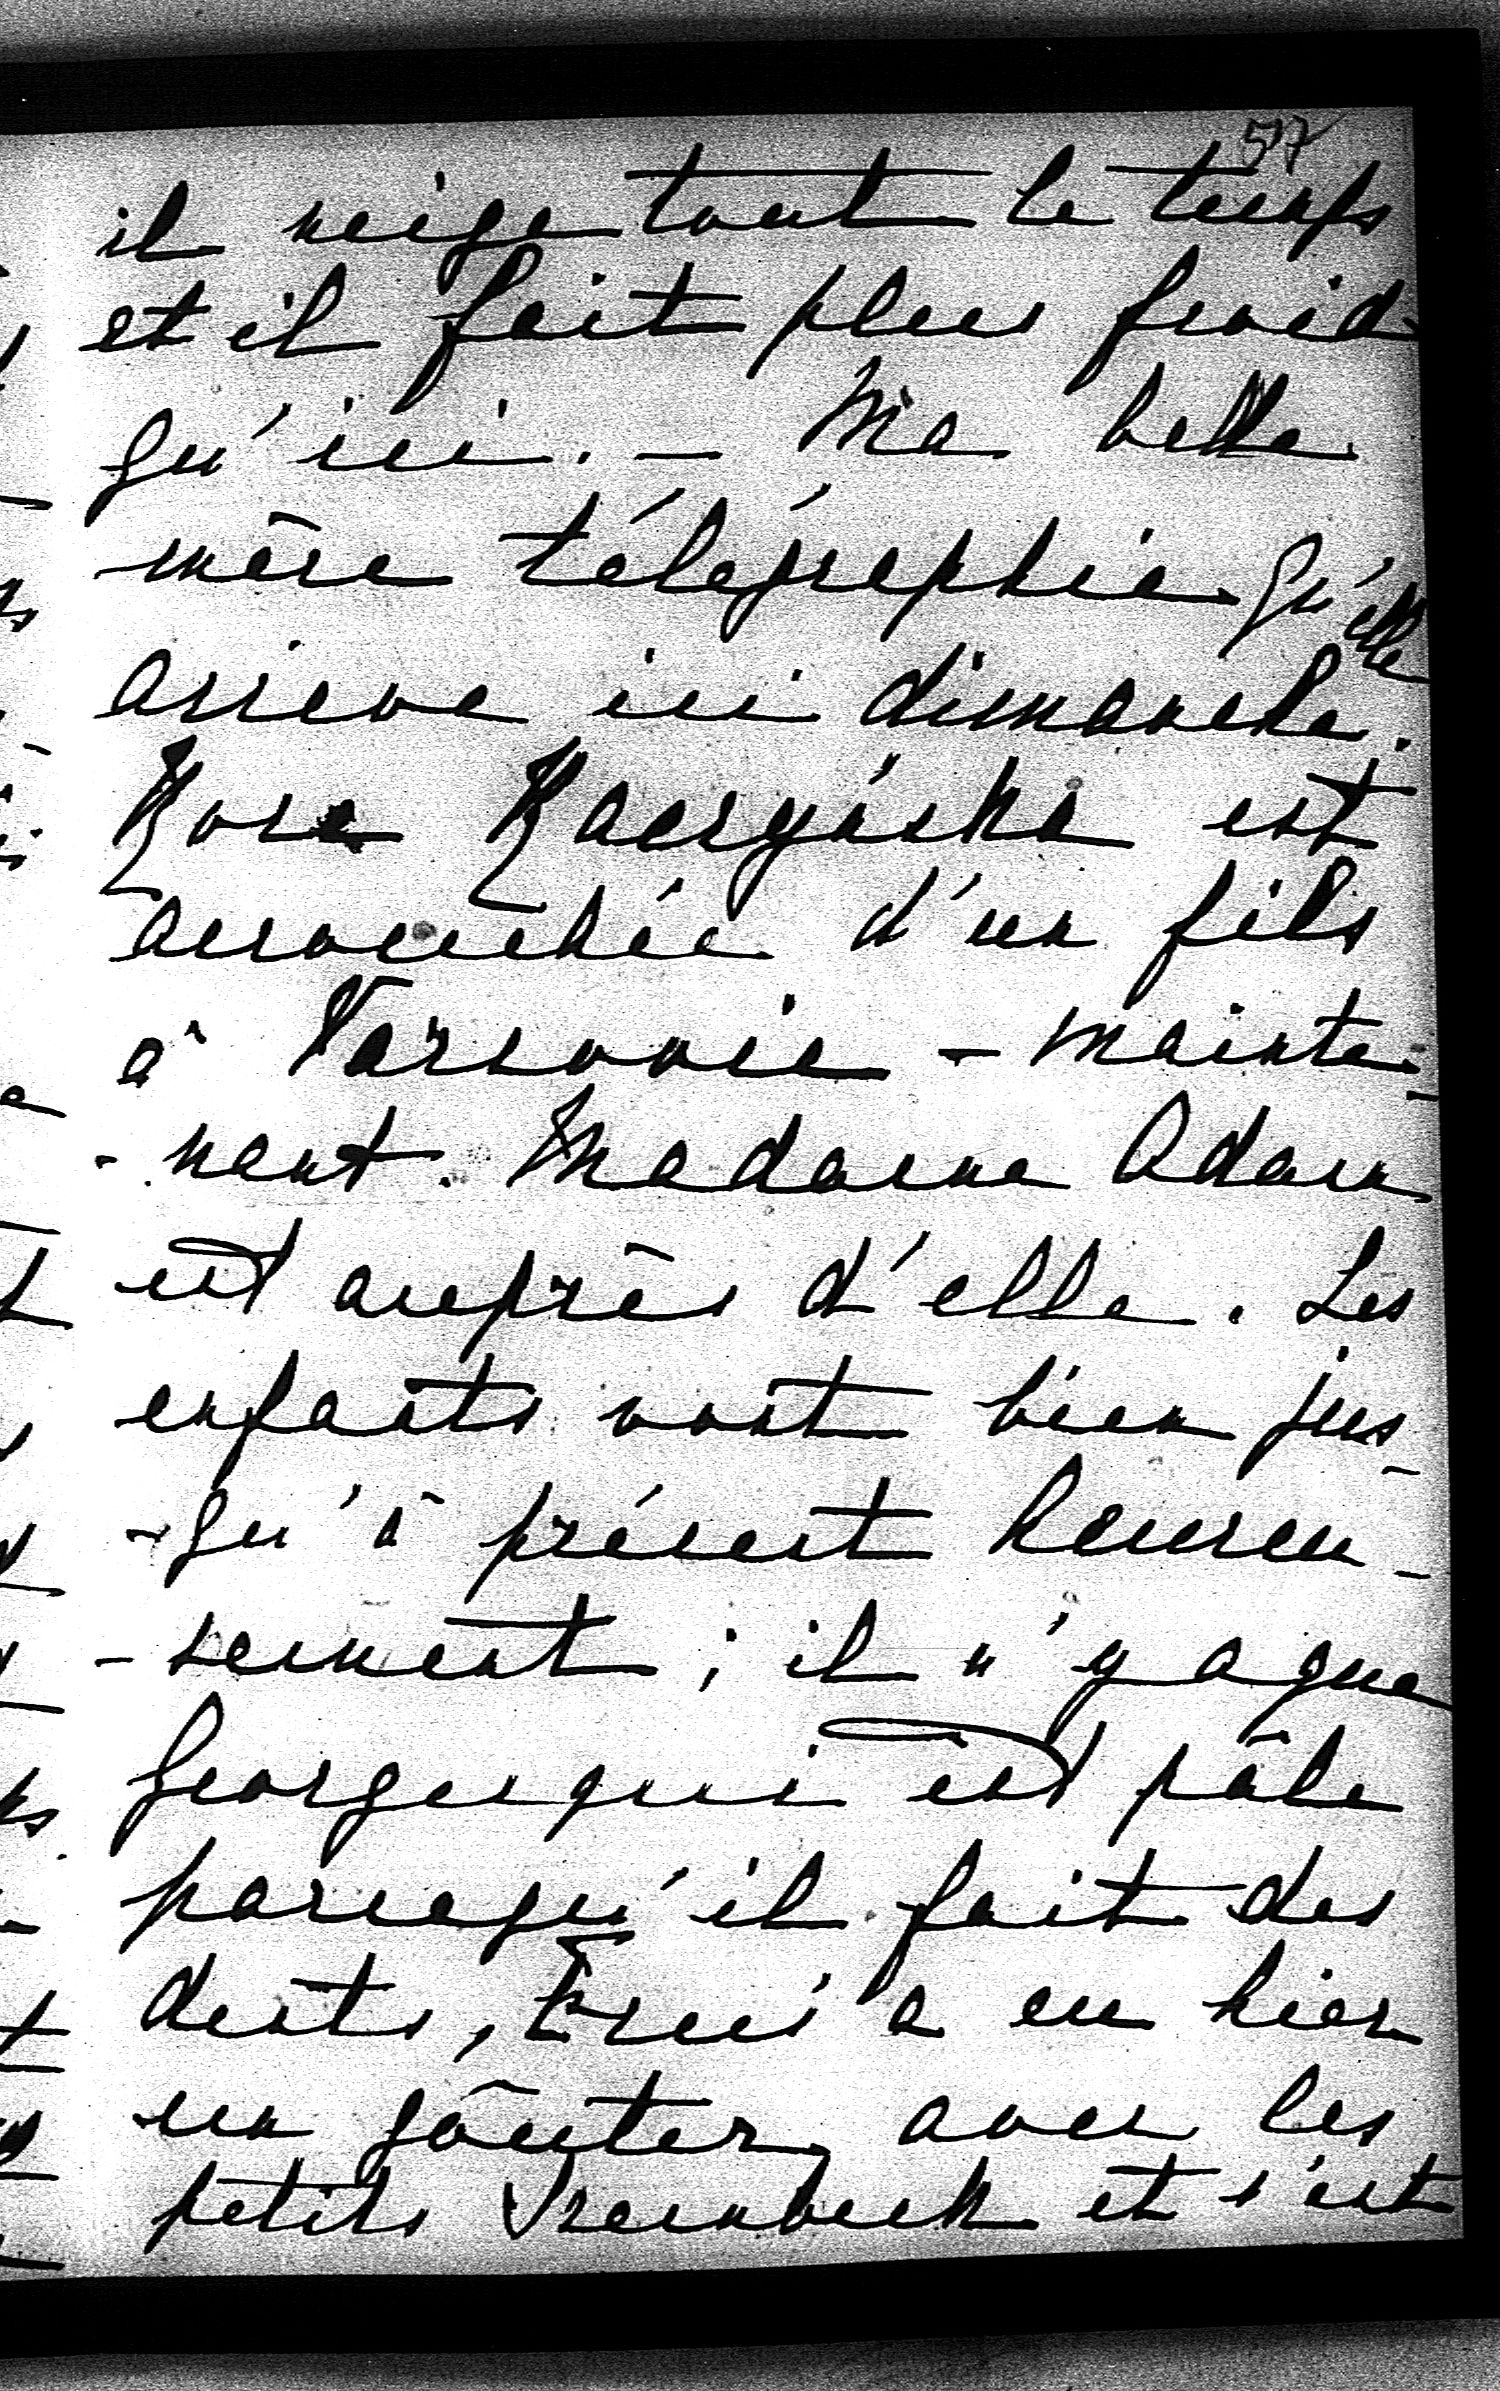 577
il neige tout le temps
et il fait plus froid
qu'ici. – Ma belle
mère télégraphie qu'elle
arrive ici dimanche.
est
accouchée d'un fils
à Varsovie – mainte-
-nant. Madame Adam
est auprès d'elle. Les
enfants vont bien jus-
-qu'à présent heureu-
-sement ; il n'y a que
Georges qui est pâle
parcequ'il fait des
dents, a eu hier
un goûter avec les
petits et s'est